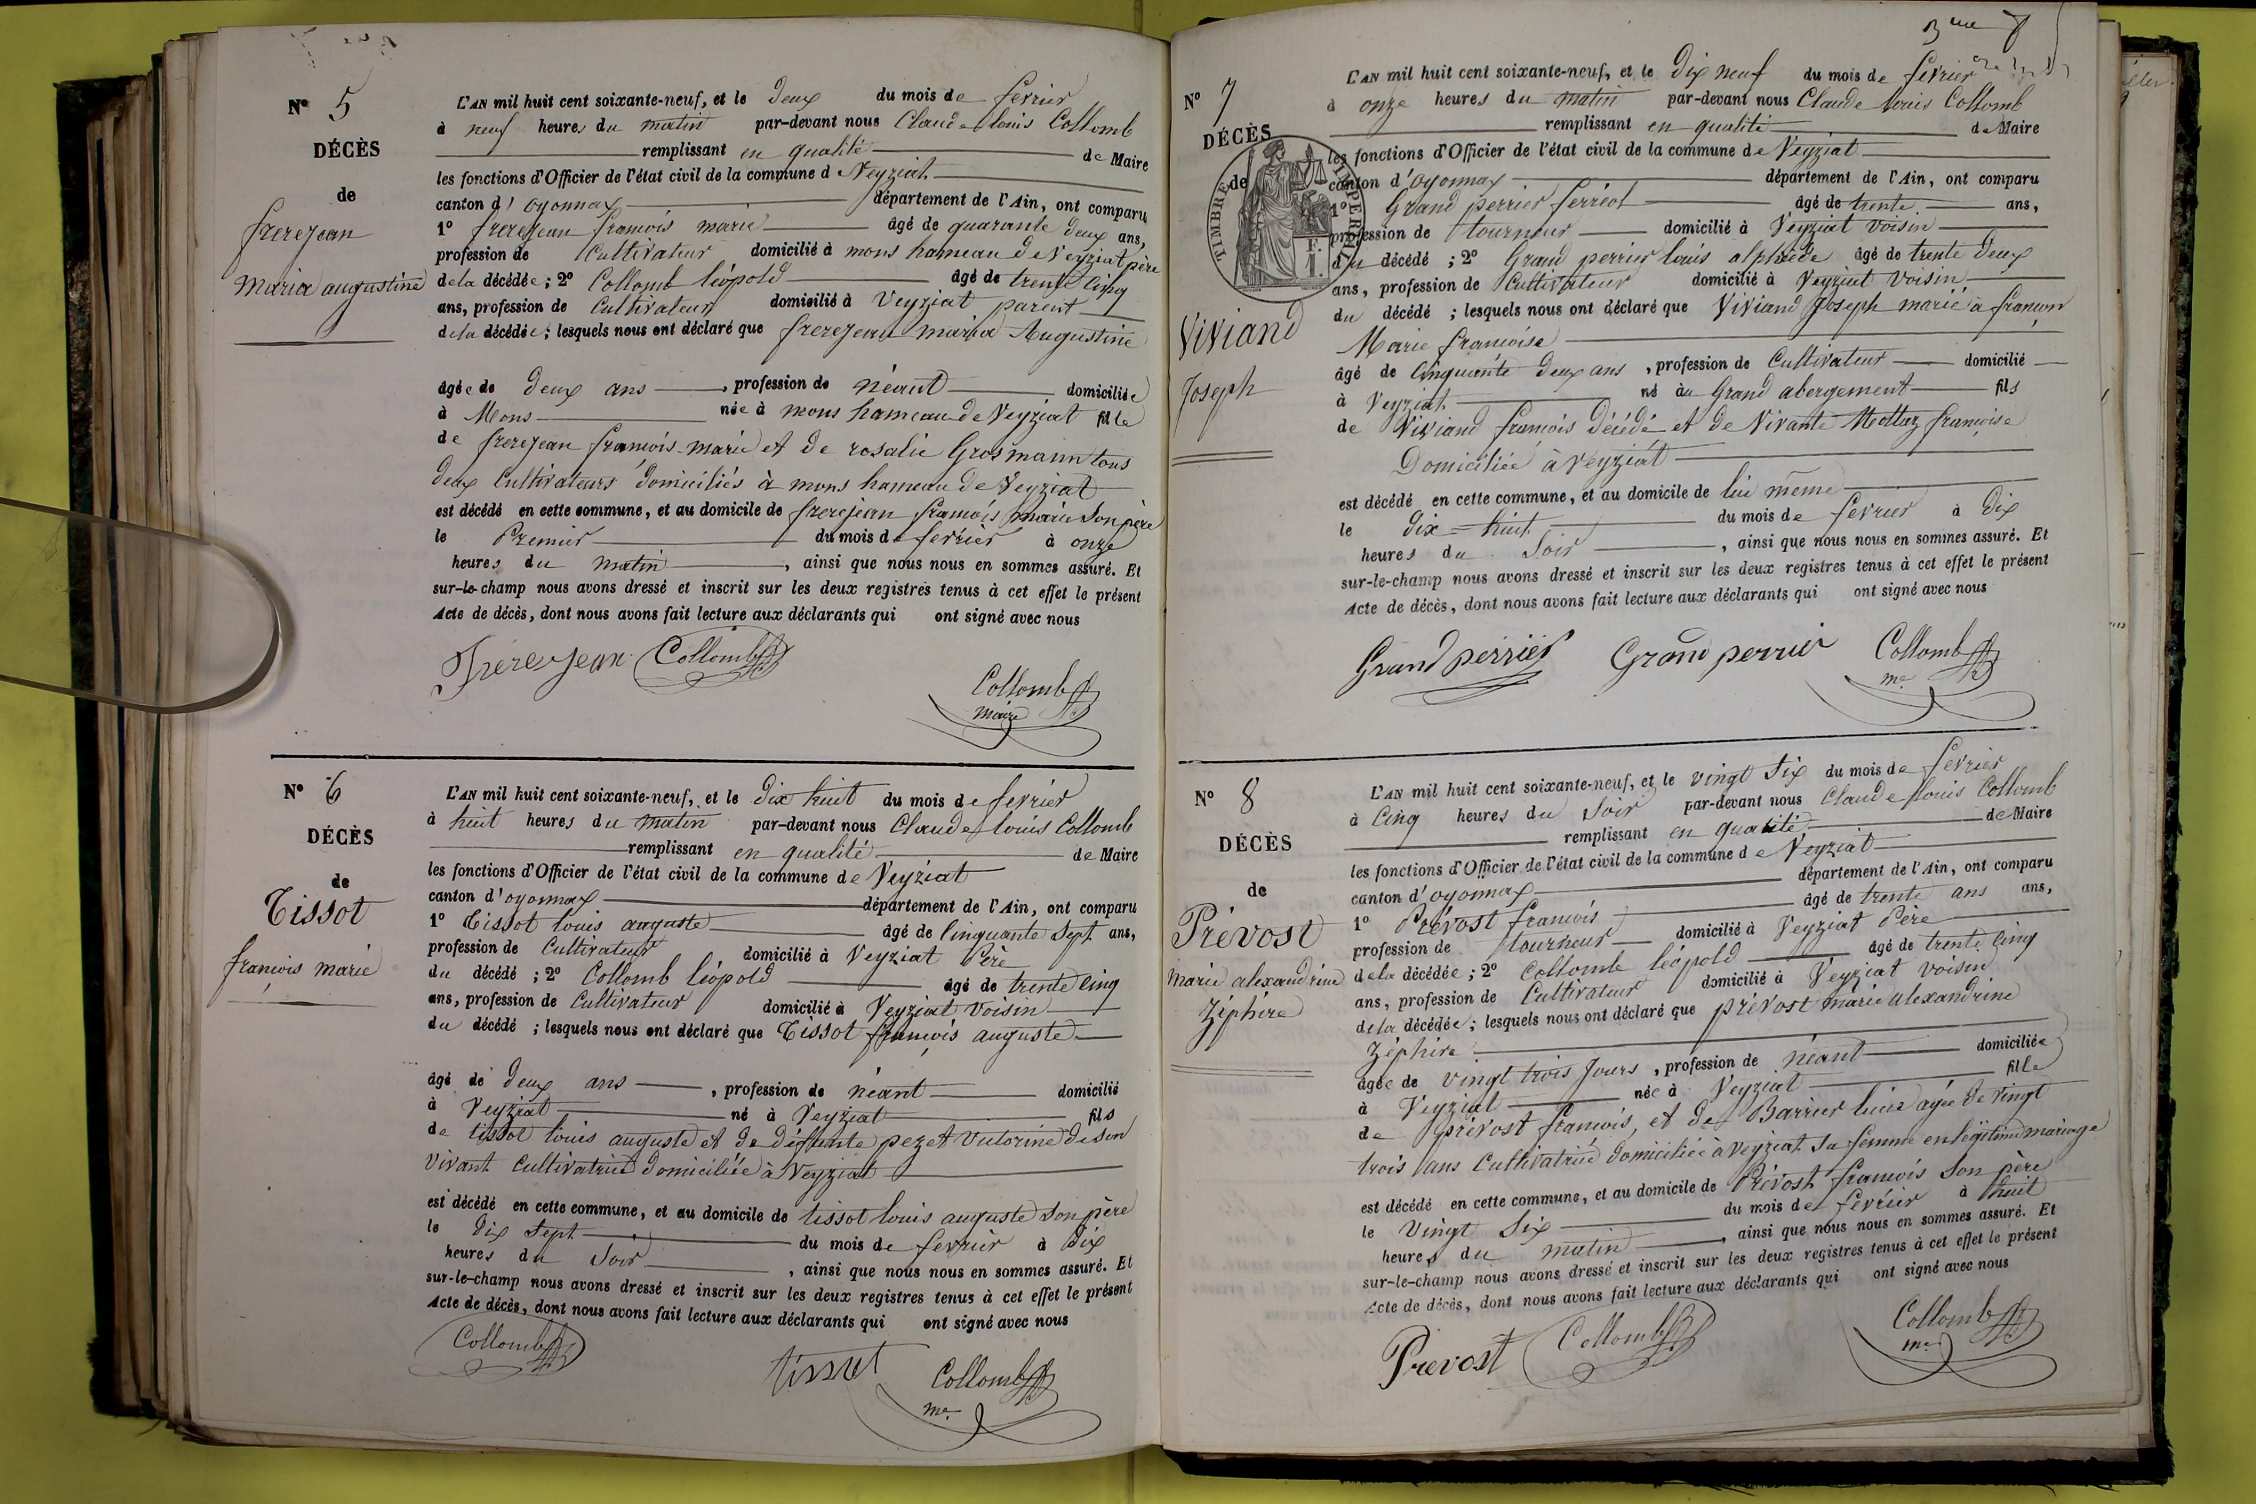 N° 5
DÉCÈS
de
frerejean
maria augustine
L'AN mil huit cent soixante-neuf, et le deux du mois de ferrier
à neuf heures du matin par-devant nous Claude louis Collomb
remplissant en qualité de Maire
les fonctions d'Officier de l'état civil de la commune d Veyziat
canton d' oyonnax département de l'Ain, ont comparu
1° frerejean francois marie âgé de quarante deux ans,
profession de Cultivateur domicilié à mons hameau de Veyziat père
de la décédée ; 2° Collomb léopold âgé de trente Cinq
ans, profession de Cultivateur domicilié à Veyziat parent
de la décédée ; lesquels nous ont déclaré que frerejean maria Augustine
âgée de deux ans , profession de néant domiciliée
à Mons née à mons hameau de Veyziat fille
de frerejean francois marie et de rosalie Grosmann tous
deux Cultivateurs domiciliés à mons hameau de Veyziat
est décédé en cette commune, et au domicile de frerejean francois marie son père
le Premier du mois de ferrier à onze
heures du matin , ainsi que nous nous en sommes assuré. Et
sur-le-champ nous avons dressé et inscrit sur les deux registres tenus à cet effet le présent
Acte de décès, dont nous avons fait lecture aux déclarants qui ont signé avec nous
Frerejean Collomb
Collomb
maire
N° 6
DÉCÈS
de
Tissot
francois marie
L'AN mil huit cent soixante-neuf, et le dix huit du mois de ferrier
à huit heures du matin par-devant nous Claude louis Collomb
remplissant en qualité de Maire
les fonctions d'Officier de l'état civil de la commune de Veyziat
canton d'oyonnax département de l'Ain, ont comparu
1° Tissot louis auguste âgé de Cinquante Sept ans,
profession de Cultivateur domicilié à Veyziat Père
du décédé ; 2° Collomb léopold âgé de trente Cinq
ans, profession de Cultivateur domicilié à Veyziat voisin
du décédé ; lesquels nous ont déclaré que Tissot francois auguste
âgé de deux ans , profession de néant domicilié
à Veyziat né à Veyziat fils
de tissot louis auguste et de défunte pezet victorine de son
vivant Cultivatrice domiciliée à Veyziat
est décédé en cette commune, et au domicile de tissot louis auguste son père
le dix sept du mois de ferrier à dix
heures du Soir , ainsi que nous nous en sommes assuré. Et
sur-le-champ nous avons dressé et inscrit sur les deux registres tenus à cet effet le présent
Acte de décès, dont nous avons fait lecture aux déclarants qui ont signé avec nous
Collomb tissot Collomb
me
3me
N° 7
DÉCÈS
de
TIMBRE IMPERIAL
Viviand
Joseph
L'AN mil huit cent soixante-neuf, et le dix neuf du mois de ferrier
à onze heures du matin par-devant nous Claude louis Collomb
remplissant en qualité de Maire
les fonctions d'Officier de l'état civil de la commune de Veyziat
canton d'oyonnax département de l'Ain, ont comparu
1° Grand perrier ferréol âgé de trente ans,
profession de tourneur domicilié à Veyziat voisin
du décédé ; 2° Grand perrier louis alphède âgé de trente deux
ans, profession de Cultivateur domicilié à Veyziat voisin
du décédé ; lesquels nous ont déclaré que Viviand Joseph marié à francon
Marie francoise
âgé de Cinquante deux ans , profession de Cultivateur domicilié
à Veyziat né au Grand abergement fils
de Viviand francois décédé et de Vivante Mottaz françoise
Domiciliée à Veyziat
est décédé en cette commune, et au domicile de lui même
le dix-huit du mois de ferrier à dix
heures du Soir , ainsi que nous nous en sommes assuré. Et
sur-le-champ nous avons dressé et inscrit sur les deux registres tenus à cet effet le présent
Acte de décès, dont nous avons fait lecture aux déclarants qui ont signé avec nous
Grand perrier Grand perrier Collomb
me
N° 8
DÉCÈS
de
Prévost
marie alexandrine
Zéphire
L'AN mil huit cent soixante-neuf, et le vingt six du mois de ferrier
à Cinq heures du Soir par-devant nous Claude louis Collomb
remplissant en qualité de Maire
les fonctions d'Officier de l'état civil de la commune de Veyziat
canton d'oyonnax département de l'Ain, ont comparu
1° Prévost francois âgé de trente ans ans,
profession de tourneur domicilié à Veyziat Père
de la décédée ; 2° Collomb léopold âgé de trente Cinq
ans, profession de Cultivateur domicilié à Veyziat voisin
de la décédée ; lesquels nous ont déclaré que prévost marie alexandrine
Zéphire
âgée de vingt trois Jours , profession de néant domiciliée
à Veyziat née à Veyziat fille
de prévost francois, et de Barrier lucie agée de vingt
trois ans Cultivatrice domiciliée à Veyziat sa femme en légitime mariage
est décédé en cette commune, et au domicile de Prévost francois son père
le Vingt Six du mois de février à huit
heures du matin , ainsi que nous nous en sommes assuré. Et
sur-le-champ nous avons dressé et inscrit sur les deux registres tenus à cet effet le présent
Acte de décès, dont nous avons fait lecture aux déclarants qui ont signé avec nous
Prevost Collomb Collomb
me